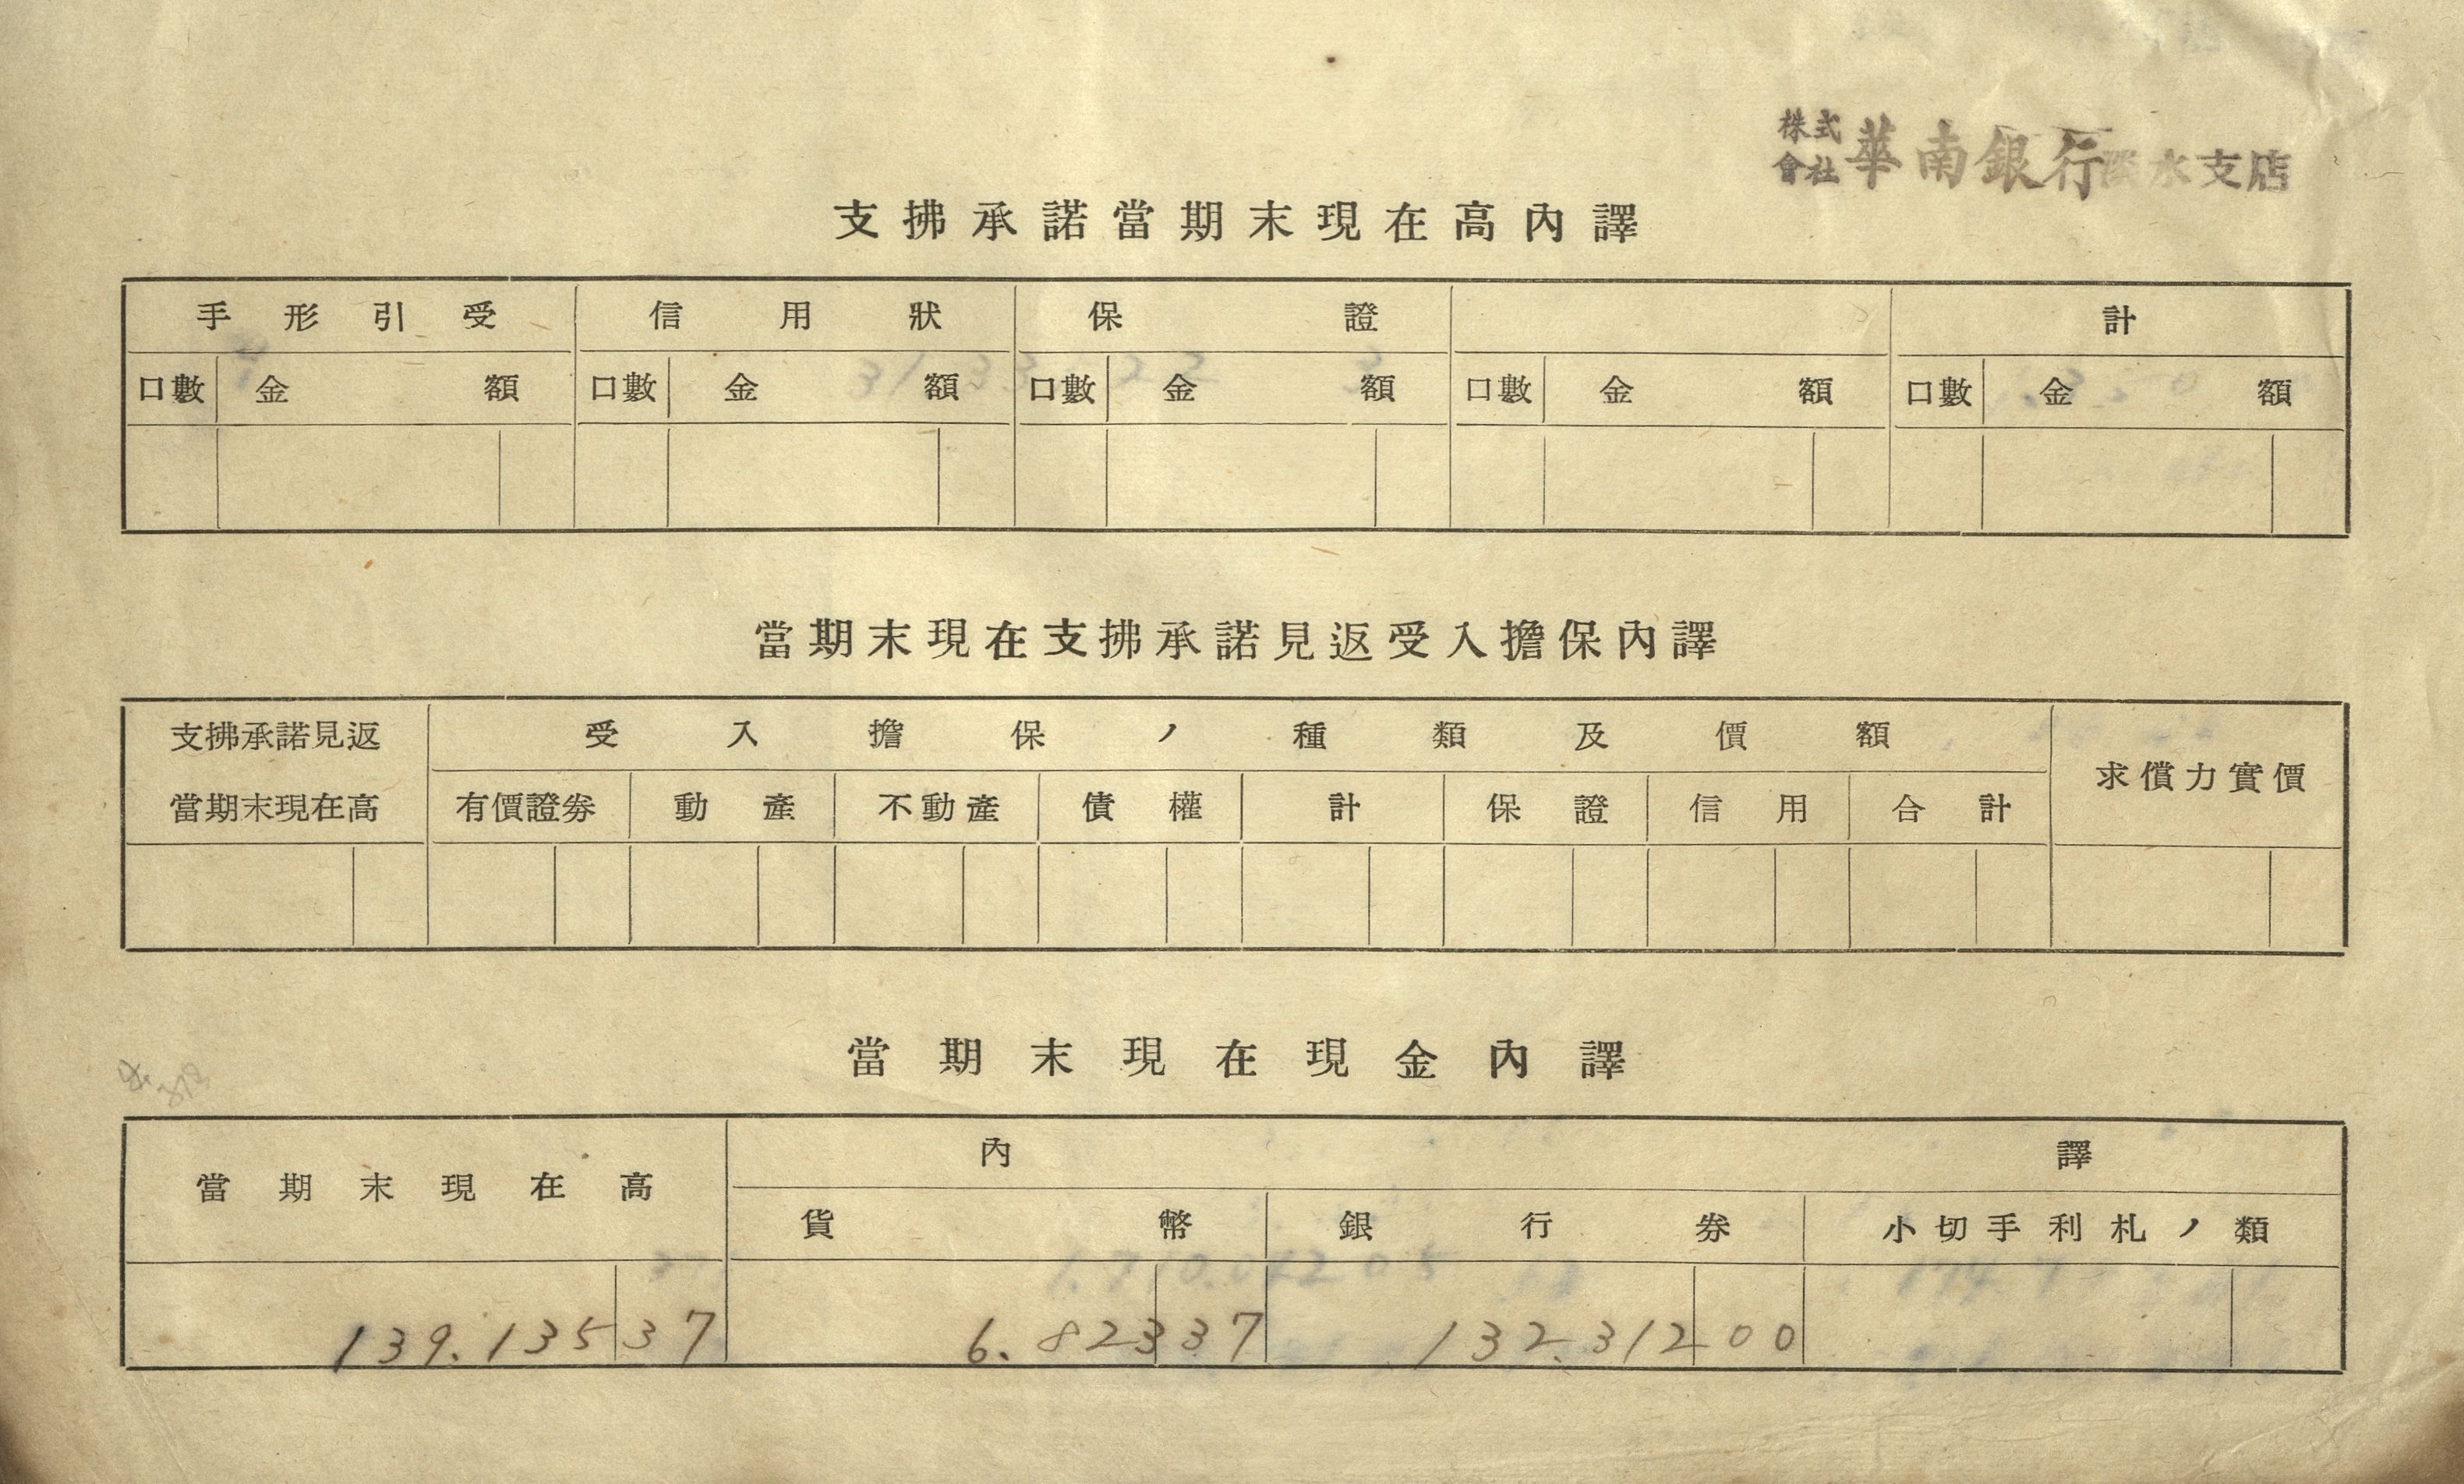 株式會社華南銀行淡水支店
支拂承諾當期末現在高內譯
手形引受 信用狀 保證 計
口數 金額 口數 金額 口數 金額 口數 金額 口數 金額
當期末現在支拂承諾見返受入擔保內譯
支拂承諾見返當期末現在高 受入擔保ノ種類及價額 求償力實價
有價證券 動產 不動產 債權 計 保證 信用 合計
當期末現在現金內譯
當期末現在高 內譯
貨幣 銀行券 小切手利札ノ類
139.135 37 6.823 37 132.312 00